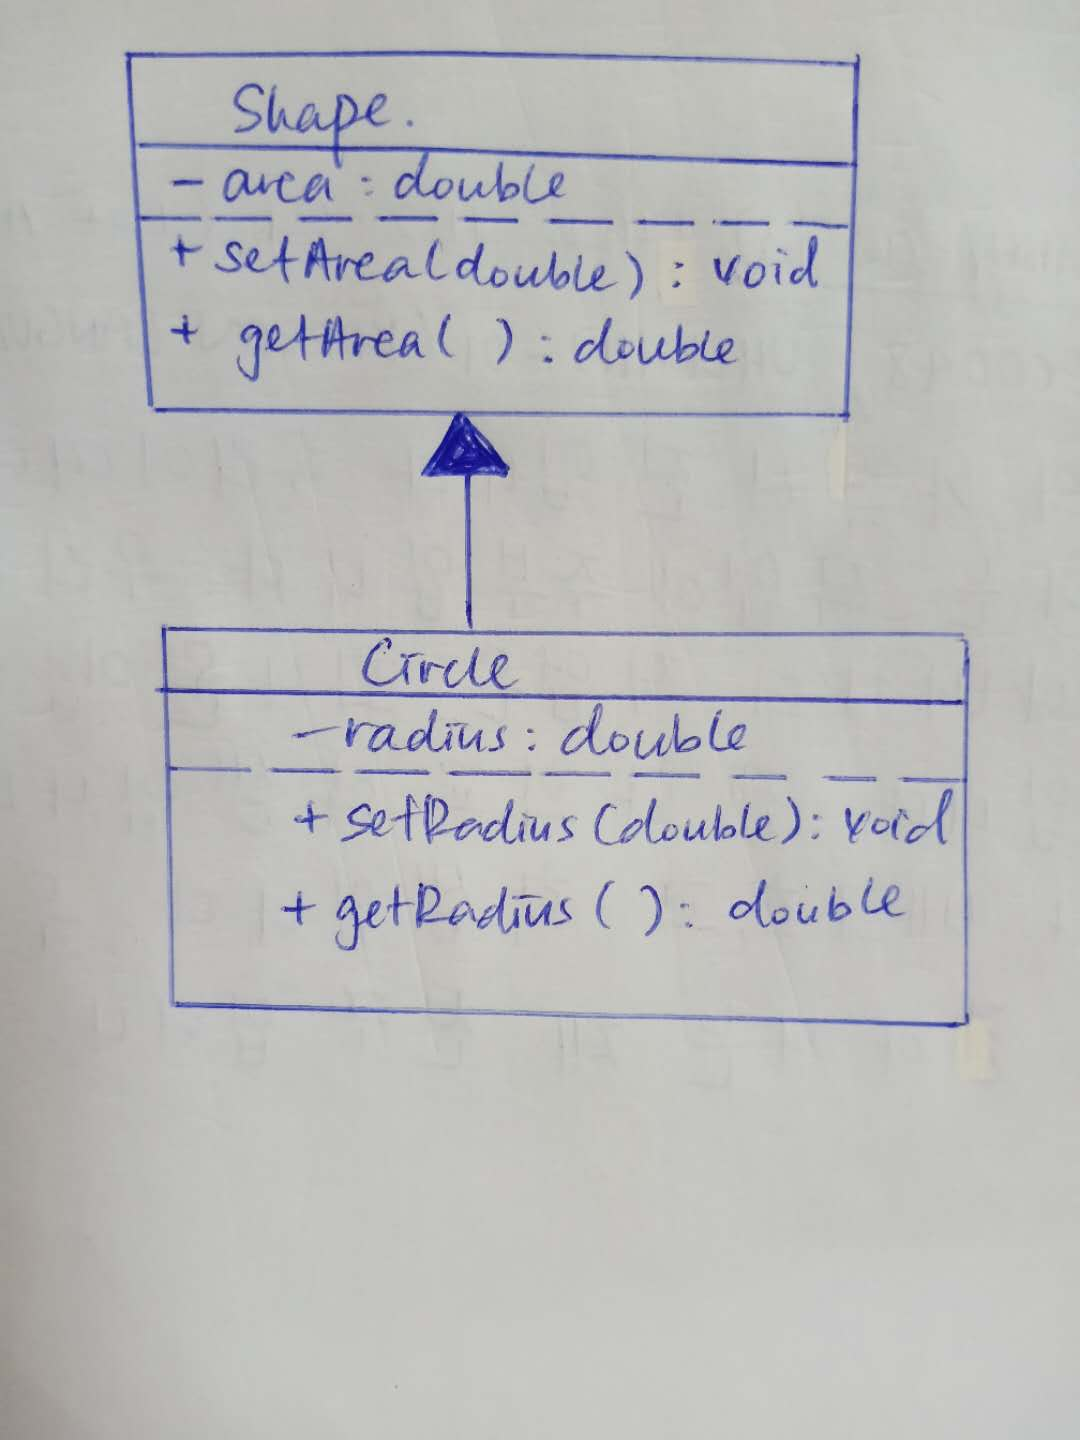 Shape.
- area : double
+ setArea(double) : void
+ getArea( ) : double
Circle
- radius : double
+ setRadius(double) : void
+ getRadius( ) : double